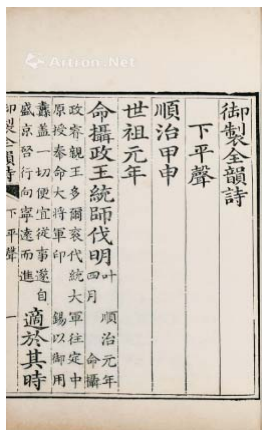 Artron.Net
御製全韻詩
下平聲
順治甲申
世祖元年
命攝政王統師伐明叶 順治元年
四月 命攝
政睿親王多爾袞代統大軍往定中
原授奉命大將軍印 錫以御用
纛蓋一切便宜從事遂自
盛京啓行向寧遠而進
適於其時
御製全韻詩 下平聲 一